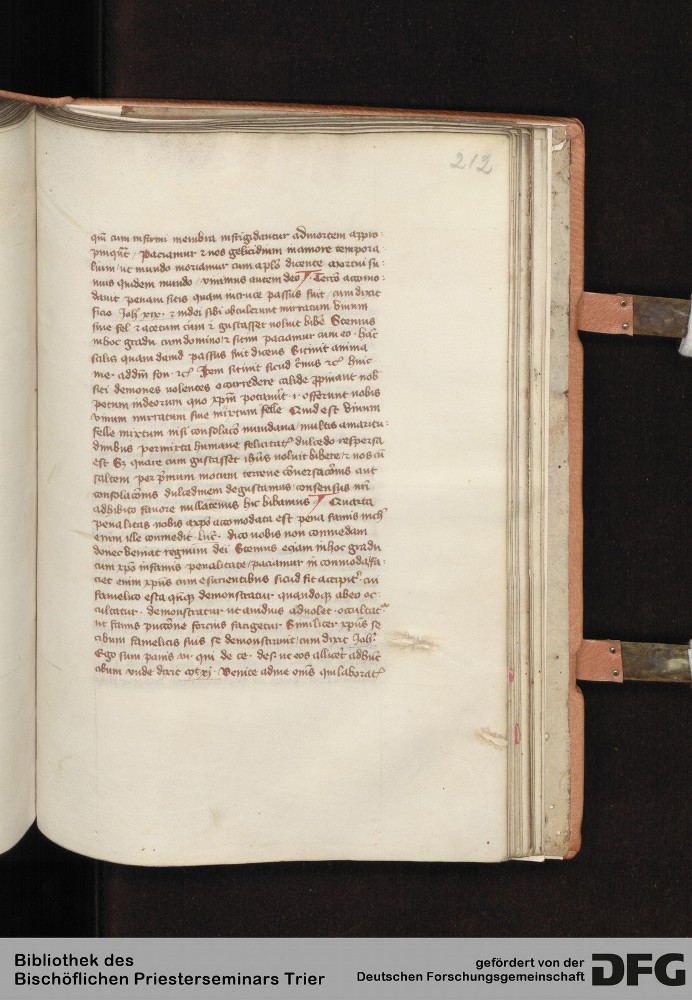 212
qm̄ cum infirmi membra infrigidantur ad mortem appro-
pinquāt / Paciamur ⁊ nos gelicidium in amore tempora-
lium / ut mundo moriamur cum aplō dicente mortui su-
mus quidem mundo / vivimus autem deo Tercō accomo-
davit penam sitis quam in cruce passus fuit / cum dixit
sicio Joh̄ xix · ⁊ iudei sibi obtulerunt mirratum vinum
sive fel ⁊ acetum cum ⁊ gustasset noluit bibē Stemus
in hoc gradu cum domino ⁊ sitim paciamur cum eo · hāc
sitis quam david passus fuit dicens Sitivit anima
mea · ad dm̄ fon · ⁊c̄ Item sitivit sicud ⁊c̄ huic
siti demones volentes calide nob̄
potum iudeorum quo xpm̄ · i · offerunt nobis
vinum mirratum sive mixtum felle Quid est vinum
felle mixtum nisi consolacō mundana / multis amaritu-
dinibus permixta humane felicitatꝭ dulcedo respersa
est Sꝫ quare cum gustasset ihūs noluit bibere / ⁊ nos cū
saltem per pͥmum motum terrene cōversacōnis aut
consolacōnis dulcedinem degustamus consensus nrī
adhibito favore nullatenus hic bibamus Quarta
penalitas nobis a xpō accomodata est pena famis
enim ille comedit · luc̄ · dico vobis non comedam
donec veniat regnum dei Stemus eciam in hoc gradu
cum xpō in famis penalitate / paciamur in comoda / fa-
ciet enim xpūs cum esurientibus sicud fit accipitͥ · cui
famelico esca qn̄qꝫ demonstratur quandoqꝫ ab eo oc-
cultatur · demonstratur ut avidius advolet · occultatͬ
ut famis forcius fatigetur Similiter xpūs se
cibum famelicis suis se demonstravit / cum dixit Joh̄
Ego sum panis vi · qui de ce · des · ut eos allicēt ad hūc
cibum unde dixit mͭ xi · Venite ad me omēs qui laboratꝭ
Bibliothek des
Bischöflichen Priesterseminars Trier
gefördert von der
Deutschen Forschungsgemeinschaft
DFG